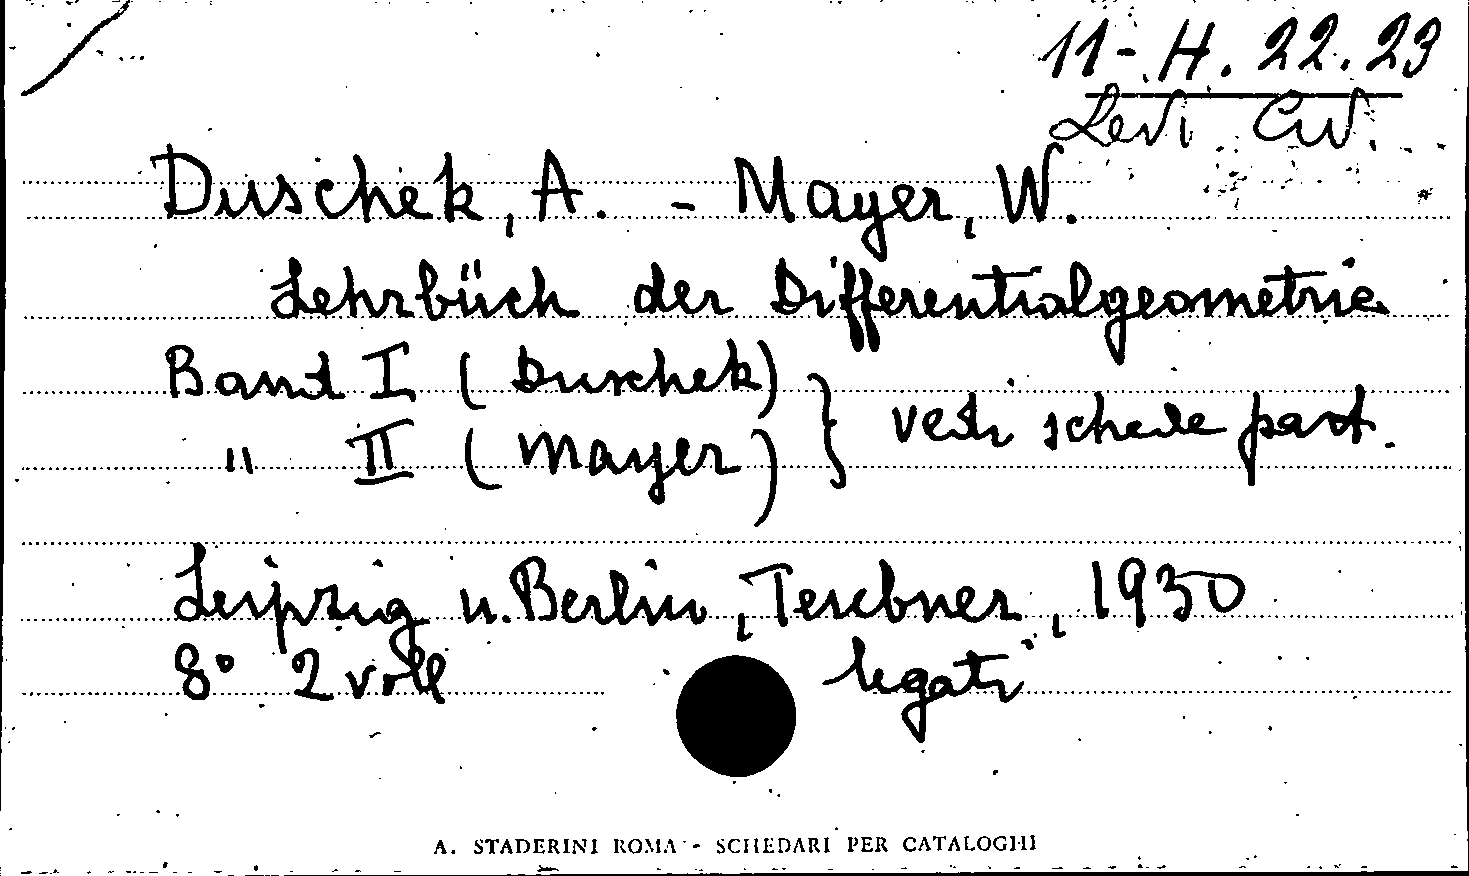 11-H. 22.23
Levi Civ.
Duschek, A. - Mayer, W.
Lehrbüch der Differentialgeometrie
Band I ( Duschek)
" II ( Mayer) } vedi schede part.
Leipzig u. Berlin, Teubner, 1930
8° 2 voll legati
A. STADERINI ROMA - SCHEDARI PER CATALOGHI